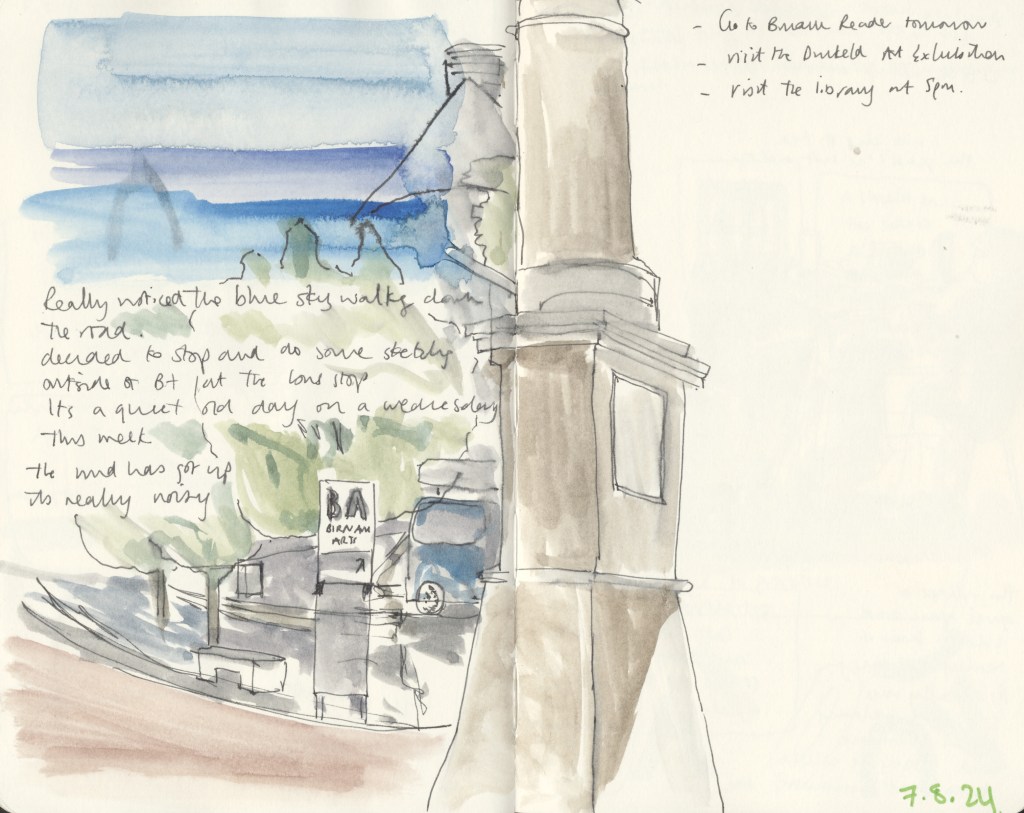 - Go to Birnam Reader tomorrow
- visit the Dunkeld Art Exhibition
- visit the library at 5pm.
Really noticed the blue sky walkg down
the road.
decided to stop and do some sketchg
outside of BA / at the bus stop
Its a quiet old day on a wednesday
This week
The wind has got up
its really noisy
BA
BIRNAM
ARTS
7.8.24